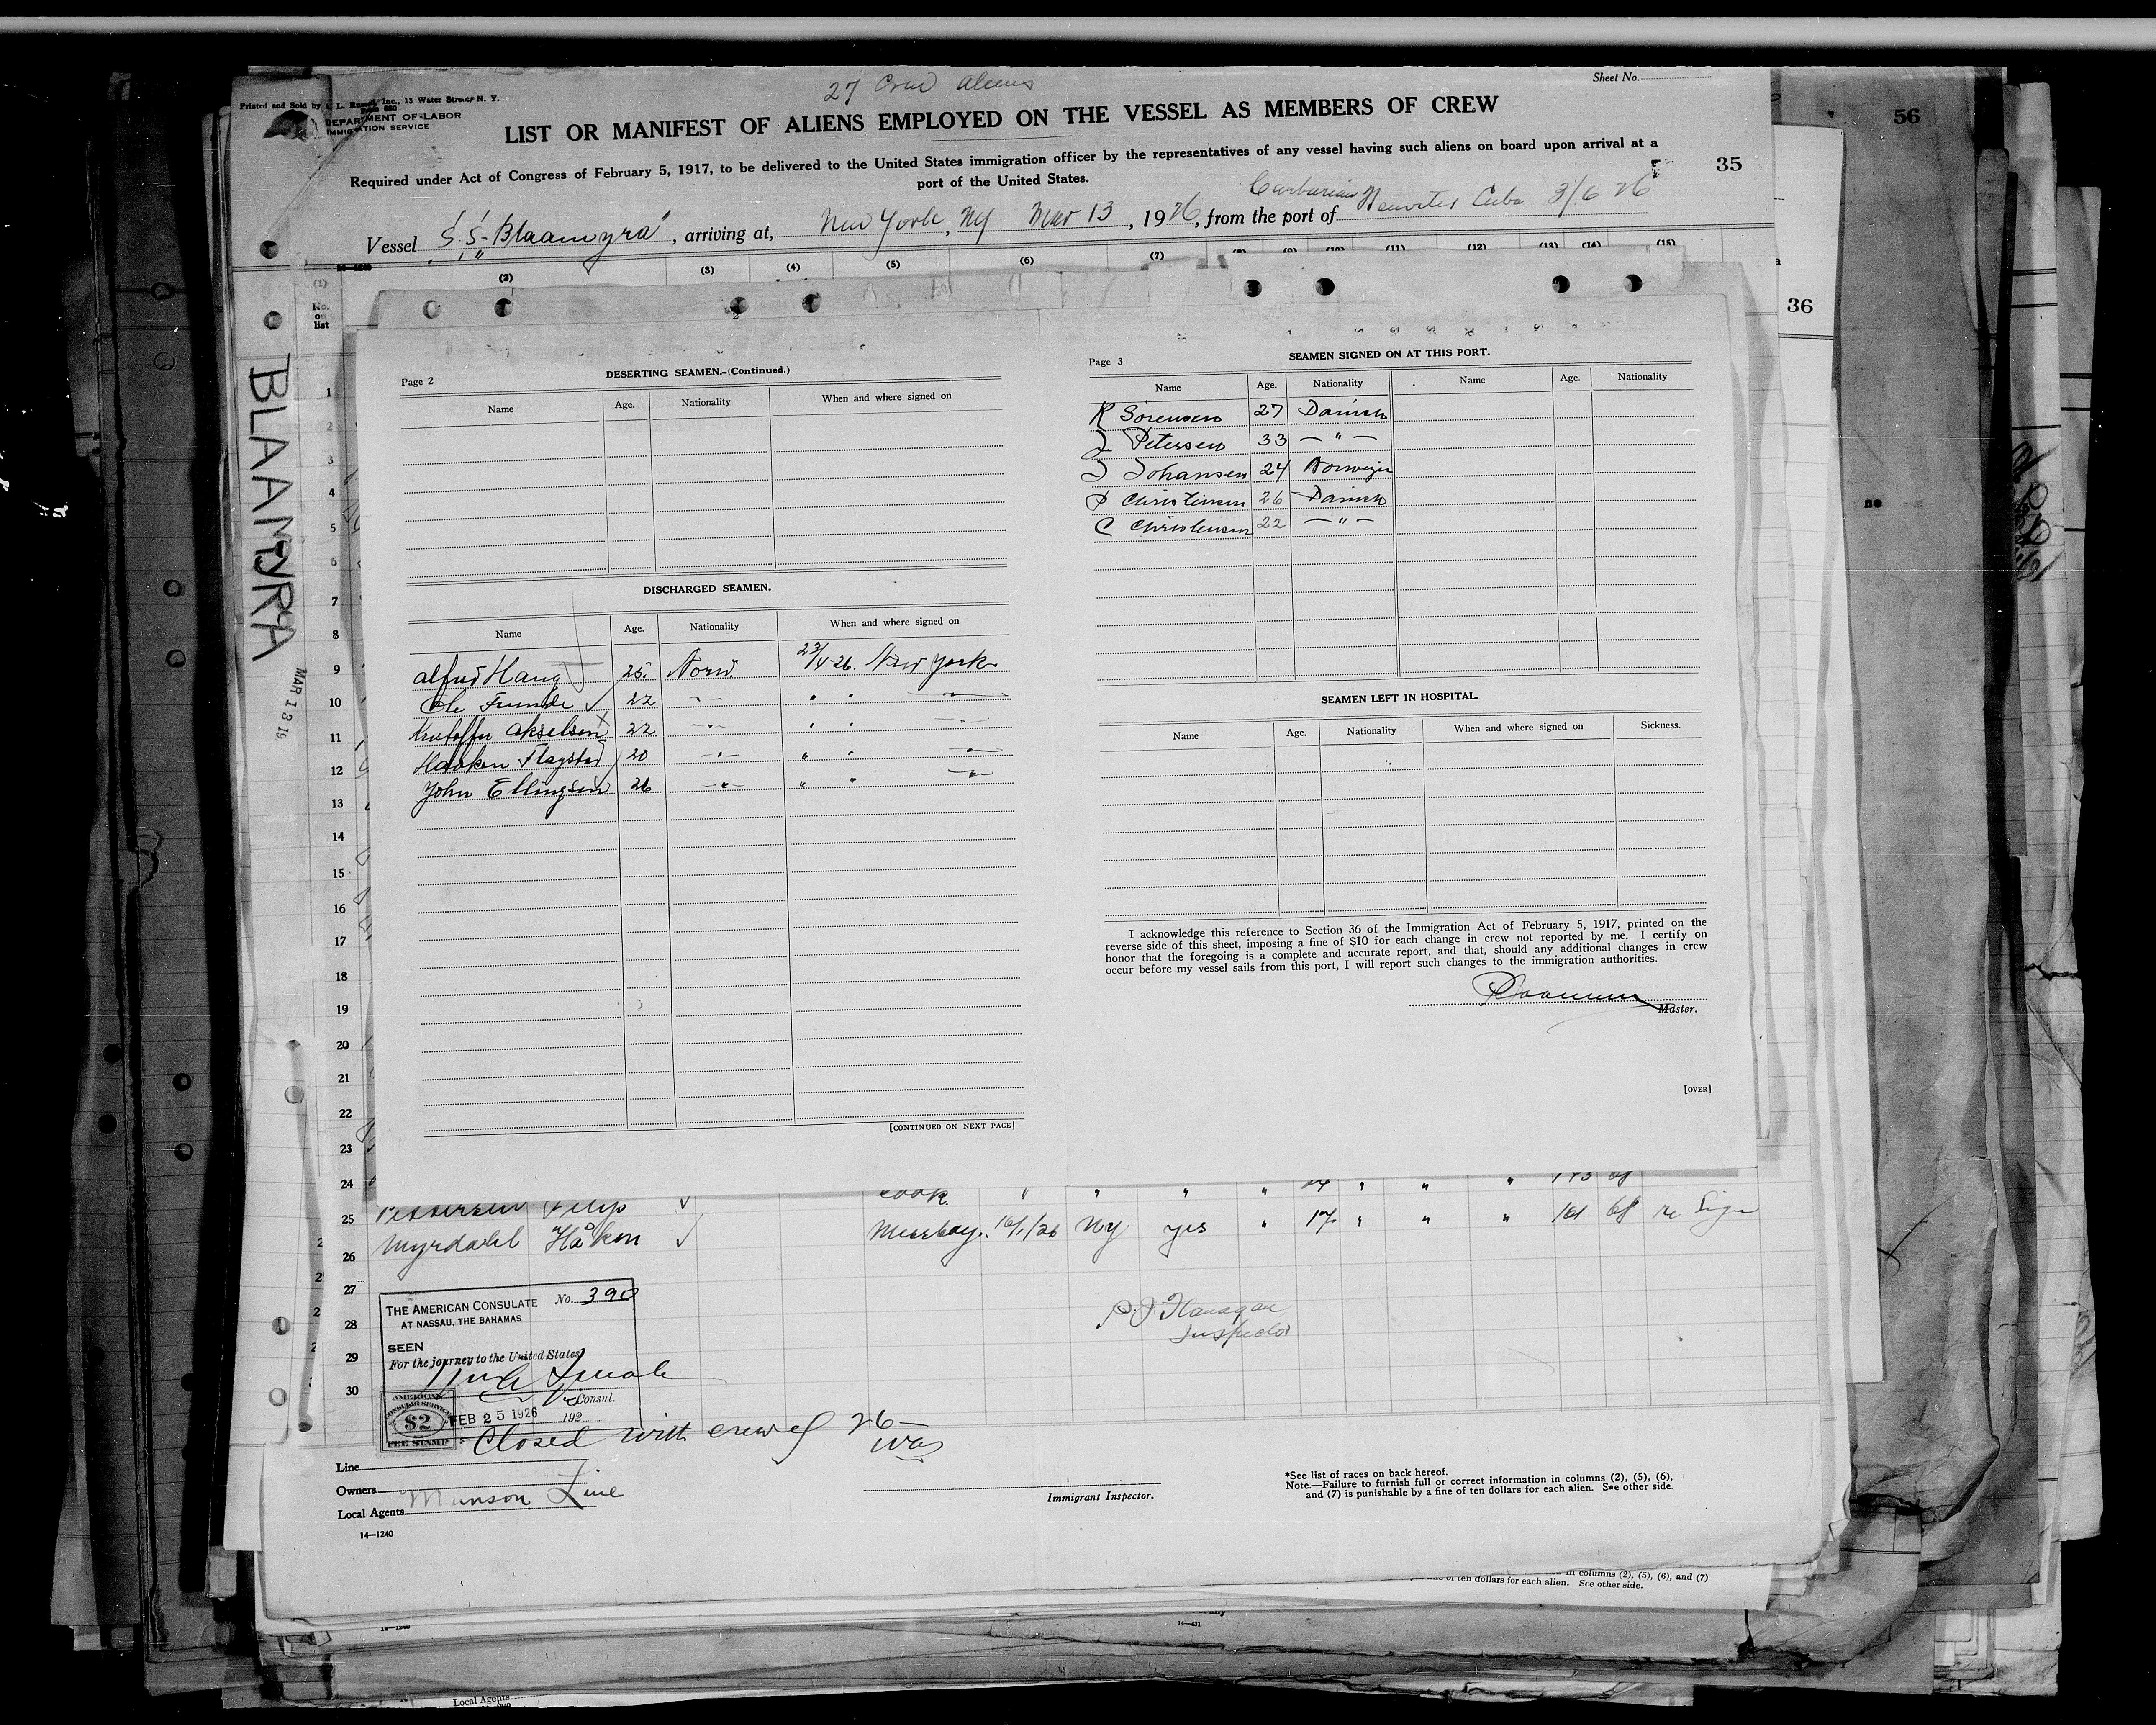 27 Crew Aliens
Sheet No.
Printed and Sold by L. Russell, Inc., 13 Water Street, N. Y.
Form 680
DEPARTMENT OF LABOR
IMMIGRATION SERVICE
LIST OR MANIFEST OF ALIENS EMPLOYED ON THE VESSEL AS MEMBERS OF CREW
Required under Act of Congress of February 5, 1917, to be delivered to the United States immigration officer by the representatives of any vessel having such aliens on board upon arrival at a
port of the United States.
35
56
36
Vessel S.S. Blaamyra, arriving at, New York, Ny Mar 13, 1926, from the port of Cuba 3/6 26
(2) (3) (4) (5) (6) (7) (8) (9) (10) (11) (12) (13) (14) (15)
(1)
No. on list
BLAAMYRA
MAR 13 19
Page 2
DESERTING SEAMEN.-(Continued.)
Name Age. Nationality When and where signed on
DISCHARGED SEAMEN.
Name Age. Nationality When and where signed on
Alfred Haug 25. Norw. 23/4-26. New York
Ole 22 " "
Akselsen 22 " "
Haakon Flagstad 20 " "
John Ellingsen 26 " "
[CONTINUED ON NEXT PAGE]
Page 3
SEAMEN SIGNED ON AT THIS PORT.
Name Age. Nationality Name Age. Nationality
R Sorensen 27 Danish
J Petersen 33 — " —
J Johansen 24 Norwegn
P Christensen 26 Danish
C Christensen 22 — " —
SEAMEN LEFT IN HOSPITAL.
Name Age. Nationality When and where signed on Sickness.
I acknowledge this reference to Section 36 of the Immigration Act of February 5, 1917, printed on the
reverse side of this sheet, imposing a fine of $10 for each change in crew not reported by me. I certify on
honor that the foregoing is a complete and accurate report, and that, should any additional changes in crew
occur before my vessel sails from this port, I will report such changes to the immigration authorities.
Master.
[OVER]
1
2
3
4
5
6
7
8
9
10
11
12
13
14
15
16
17
18
19
20
21
22
23
24
25
26
27
28
29
30
Pettersen Filip Cook
Myrdahl Håkon Messboy. 16/1/26 Ny yes " 17 " " " 161 re Sign
P. J. Flanagan
Inspector
THE AMERICAN CONSULATE No. 390
AT NASSAU, THE BAHAMAS
SEEN
For the journey to the United States
Vice Consul.
FEB 25 1926 192
AMERICAN
CONSULAR SERVICE
$2
FEE STAMP
Closed with crew of 26—
Line
Owners
Local Agents Munson Line
14—1240
Immigrant Inspector.
*See list of races on back hereof.
Note.—Failure to furnish full or correct information in columns (2), (5), (6),
and (7) is punishable by a fine of ten dollars for each alien. See other side.
in columns (2), (5), (6), and (7)
of ten dollars for each alien. See other side.
14—1240
14—431
Local Agents